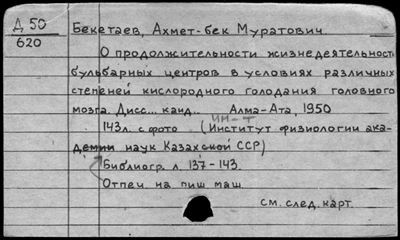 Д 50
620
Бекетаев, Ахмет-бек Муратович.
О продолжительности жизнедеятельност
бульбарных центров в условиях различных
степеней кислородного голодания головного
мозга. Дисс... канд... Алма-Ата, 1950
ин-т
143л. с фото. (Институт физиологии ака-
демии наук Казахской ССР)
Библиогр. л. 137-143.
Отпеч. на пиш. маш.
см. след. карт.